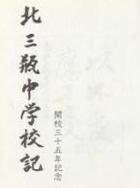 北三瓶中学校記
開校三十五年記念